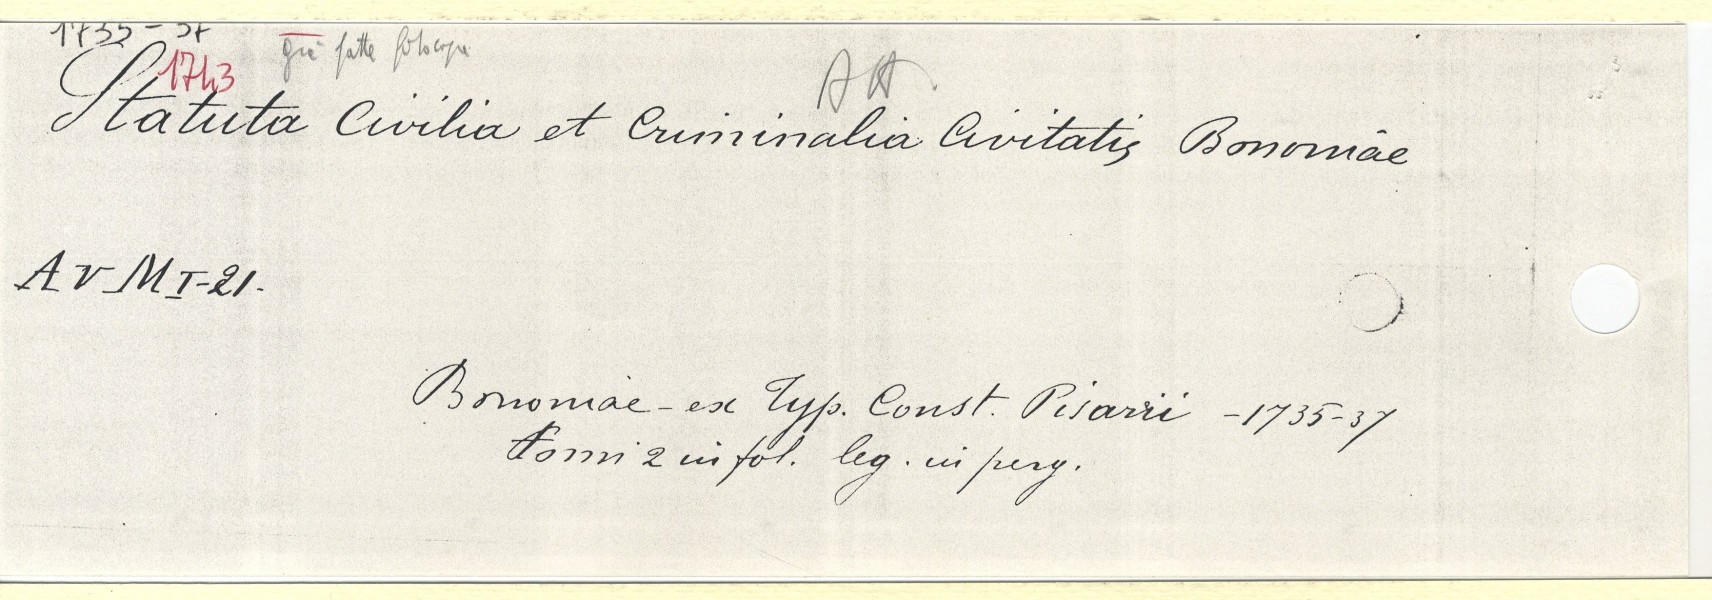 1735-37
già fatte fotocopie
1743
A H
Statuta Civilia et Criminalia Civitatis Bononiae
A V M I-21.
Bononiae - ex Typ. Const. Pisarri - 1735-37
Tomi 2 in fol. leg. in perg.